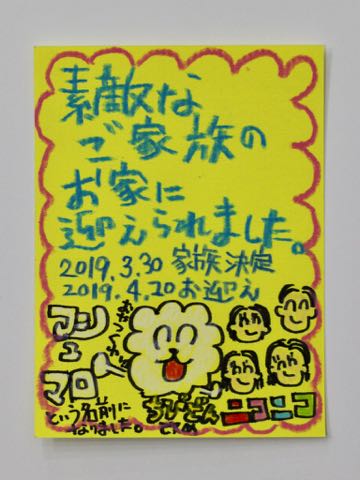 素敵な
ご家族の
お家に
迎えられました。
2019.3.30 家族決定
2019.4.20 お迎え
マシュマロ
という名前に
なりました。
ニコニコ